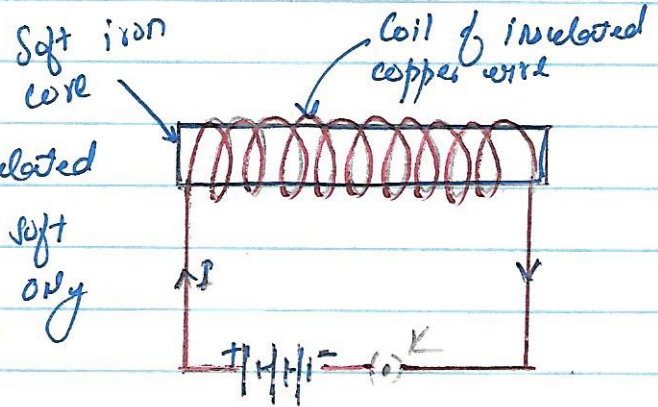 Soft iron
core
Coil of insulated
copper wire
elated
soft
only
I
+ -
K